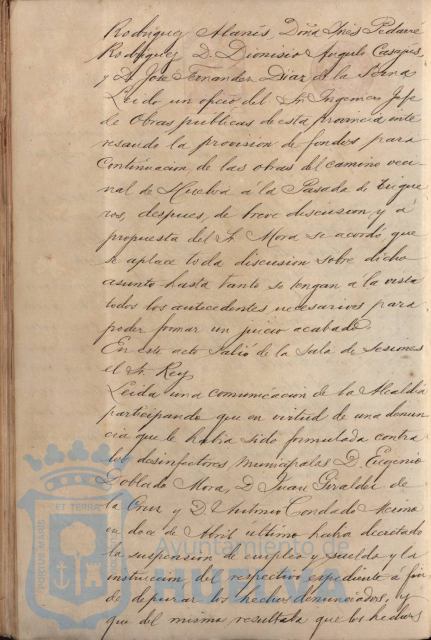 Rodríguez Alanís, Doña Inés Pedarré
Rodríguez, D. Dionisio Angulo Casapies,
y D. José Fernandez Diaz de la Serna
Leido un oficio del Sr. Ingeniero Jefe
de Obras publicas de esta provincia inte
resando la provision de fondos para
continuacion de las obras del camino veci
nal de Huelva a la Pasada de Trigue
ros, despues, de breve discusion y á
propuesta del Sr. Mora se acordó que
se aplace toda discusion sobre dicho
asunto hasta tanto se tengan a la vista
todos los antecedentes necesarios para
poder formar un juicio acabado.
En este acto salió de la Sala de Sesiones
el Sr. Rey
Leida una comunicacion de la Alcaldia
participando que en virtud de una denun
cia que le habia sido formulada contra
los desinfectores municipales D. Eugenio
Doblado Mora, D. Juan Giraldez de
la Cruz y D. Antonio Condado
en doce de Abril ultimo habia decretado
la suspension de empleo y sueldo y la
instruccion del respectivo expediente a fin
de depurar los hechos denunciados, y
que del mismo resultaba que los hechos
PORTUS MARIS ET TERRAE
Ayuntamiento de
HUELVA